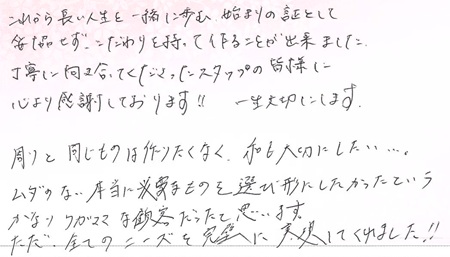 これから長い人生を一緒に歩む 始まりの証として
妥協せず、こだわりを持って作ることが出来ました。
丁寧に向き合ってくださったスタッフの皆様に
心より感謝しております!! 一生大切にします。
周りと同じものは作りたくなく、和も大切にしたい…。
ムダのない本当に必要なものを選び形にしたかったという
かなりワガママな顧客だったと思います。
ただ、全てのニーズを完璧に実現してくれました!!